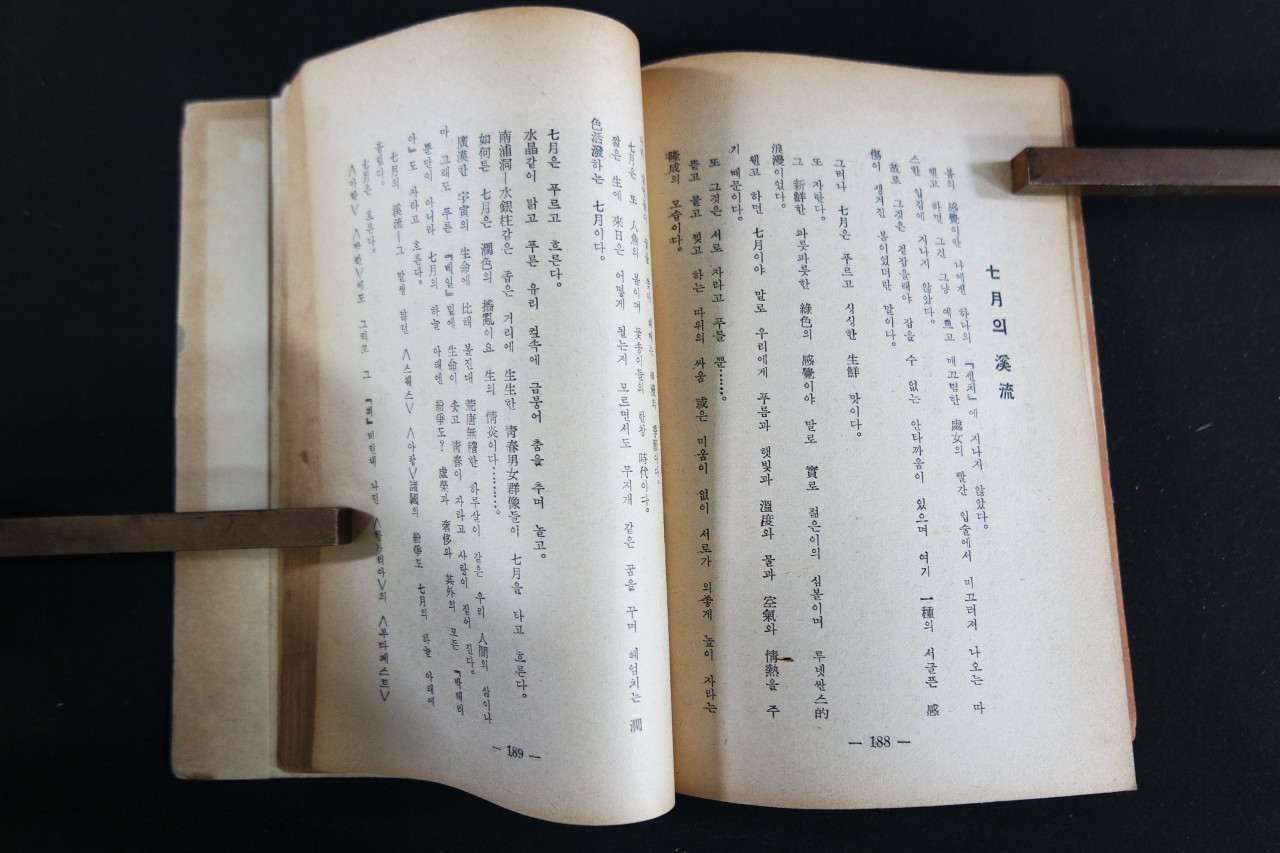 七月의 溪流
봄의 感覺이란 나에겐 하나의 『센치』에 지나지 않았다.
웬고 하면 그건 그냥 예쁘고 매끄럼한 處女의 빨간 입술에서 미끄러져 나오는 따
스한 입김에 지나지 않았다.
故로 그것은 걷잡을래야 잡을 수 없는 안타까움이 있으며 여기 一種의 서글픈 感
傷이 생겨진 봄이었더란 말이다.
그러나 七月은 푸르고 싱싱한 生鮮 맛이다.
또 자란다.
그 新鮮한 파릇파릇한 綠色의 感覺이야 말로 實로 젊은이의 심볼이며 루넷싼스的
浪漫이었다.
웬고 하면 七月이야 말로 우리에게 푸름과 햇빛과 溫度와 물과 空氣와 情熱을 주
기 때문이다.
또 그것은 서로 자라고 푸를 뿐……。
뜯고 물고 찢고 하는 따위의 싸움 或은 미움이 없이 서로가 의좋게 높이 자라는
隆成의 모습이다.
— 188 —
七月은 또 人魚의 봄이며 꽃송이들의 한창 時代이다.
짧은 生에 來日은 어떻게 될는지 모르면서도 무지개 같은 꿈을 꾸며 헤엄치는 潤
色活潑하는 七月이다.
七月은 푸르고 흐른다.
水晶같이 맑고 푸른 유리 컵속에 금붕어 춤을 추며 놀고.
南浦洞—水銀柱같은 좁은 거리에 生生한 靑春男女群像들이 七月을 타고 흐른다.
如何튼 七月은 潤色의 搖亂이요 生의 情炎이다………。
廣漠한 宇宙의 生命에 比해 볼진대 荒唐無稽한 하루살이 같은 우리 人間의 삶이나
마 그래도 푸른 『베일』 밑에 生命이 솟고 靑春이 자라고 사랑이 짙어 진다.
뿐만이 아니라 七月의 하늘 아래엔 紛爭도? 虛榮과 奢侈와 其外의 모든 『박테리
아』도 자라고 흐른다.
七月의 溪流—그 말썽 많던 <스웨스> <아랍>諸國의 紛爭도 七月의 하늘 아래에
흘렀다.
七月은 흐른다.